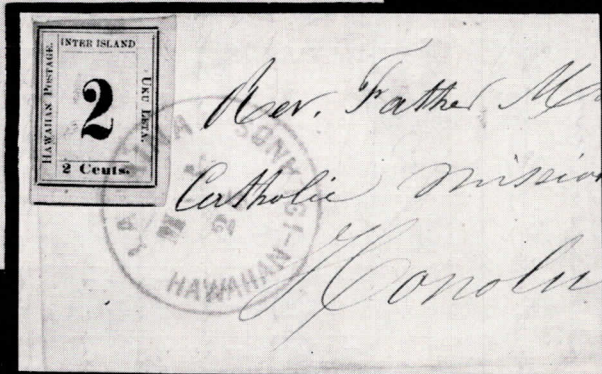 INTER ISLAND
HAWAIIAN POSTAGE.
UKU LETA.
2
2 Cents.
LAHAINA
HAWAIIAN-ISLANDS
Rev. Father
Catholic Mission
Honolu